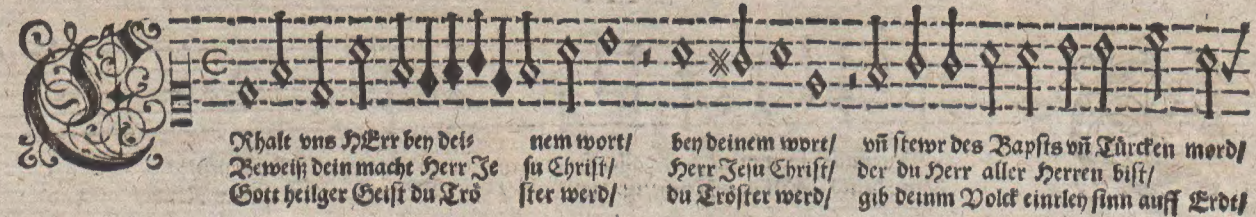 ERhalt vns HErr bey dei⸗ nem wort/ bey deinem wort/ vñ stewr des Bapsts vñ Türcken mord/
Beweiß dein macht Herr Je su Christ/ Herr Jesu Christ/ der du Herr aller Herren bist/
Gott heilger Geist du Trö ster werd/ du Tröster werd/ gib deinm Volck einrley sinn auff Erdt/